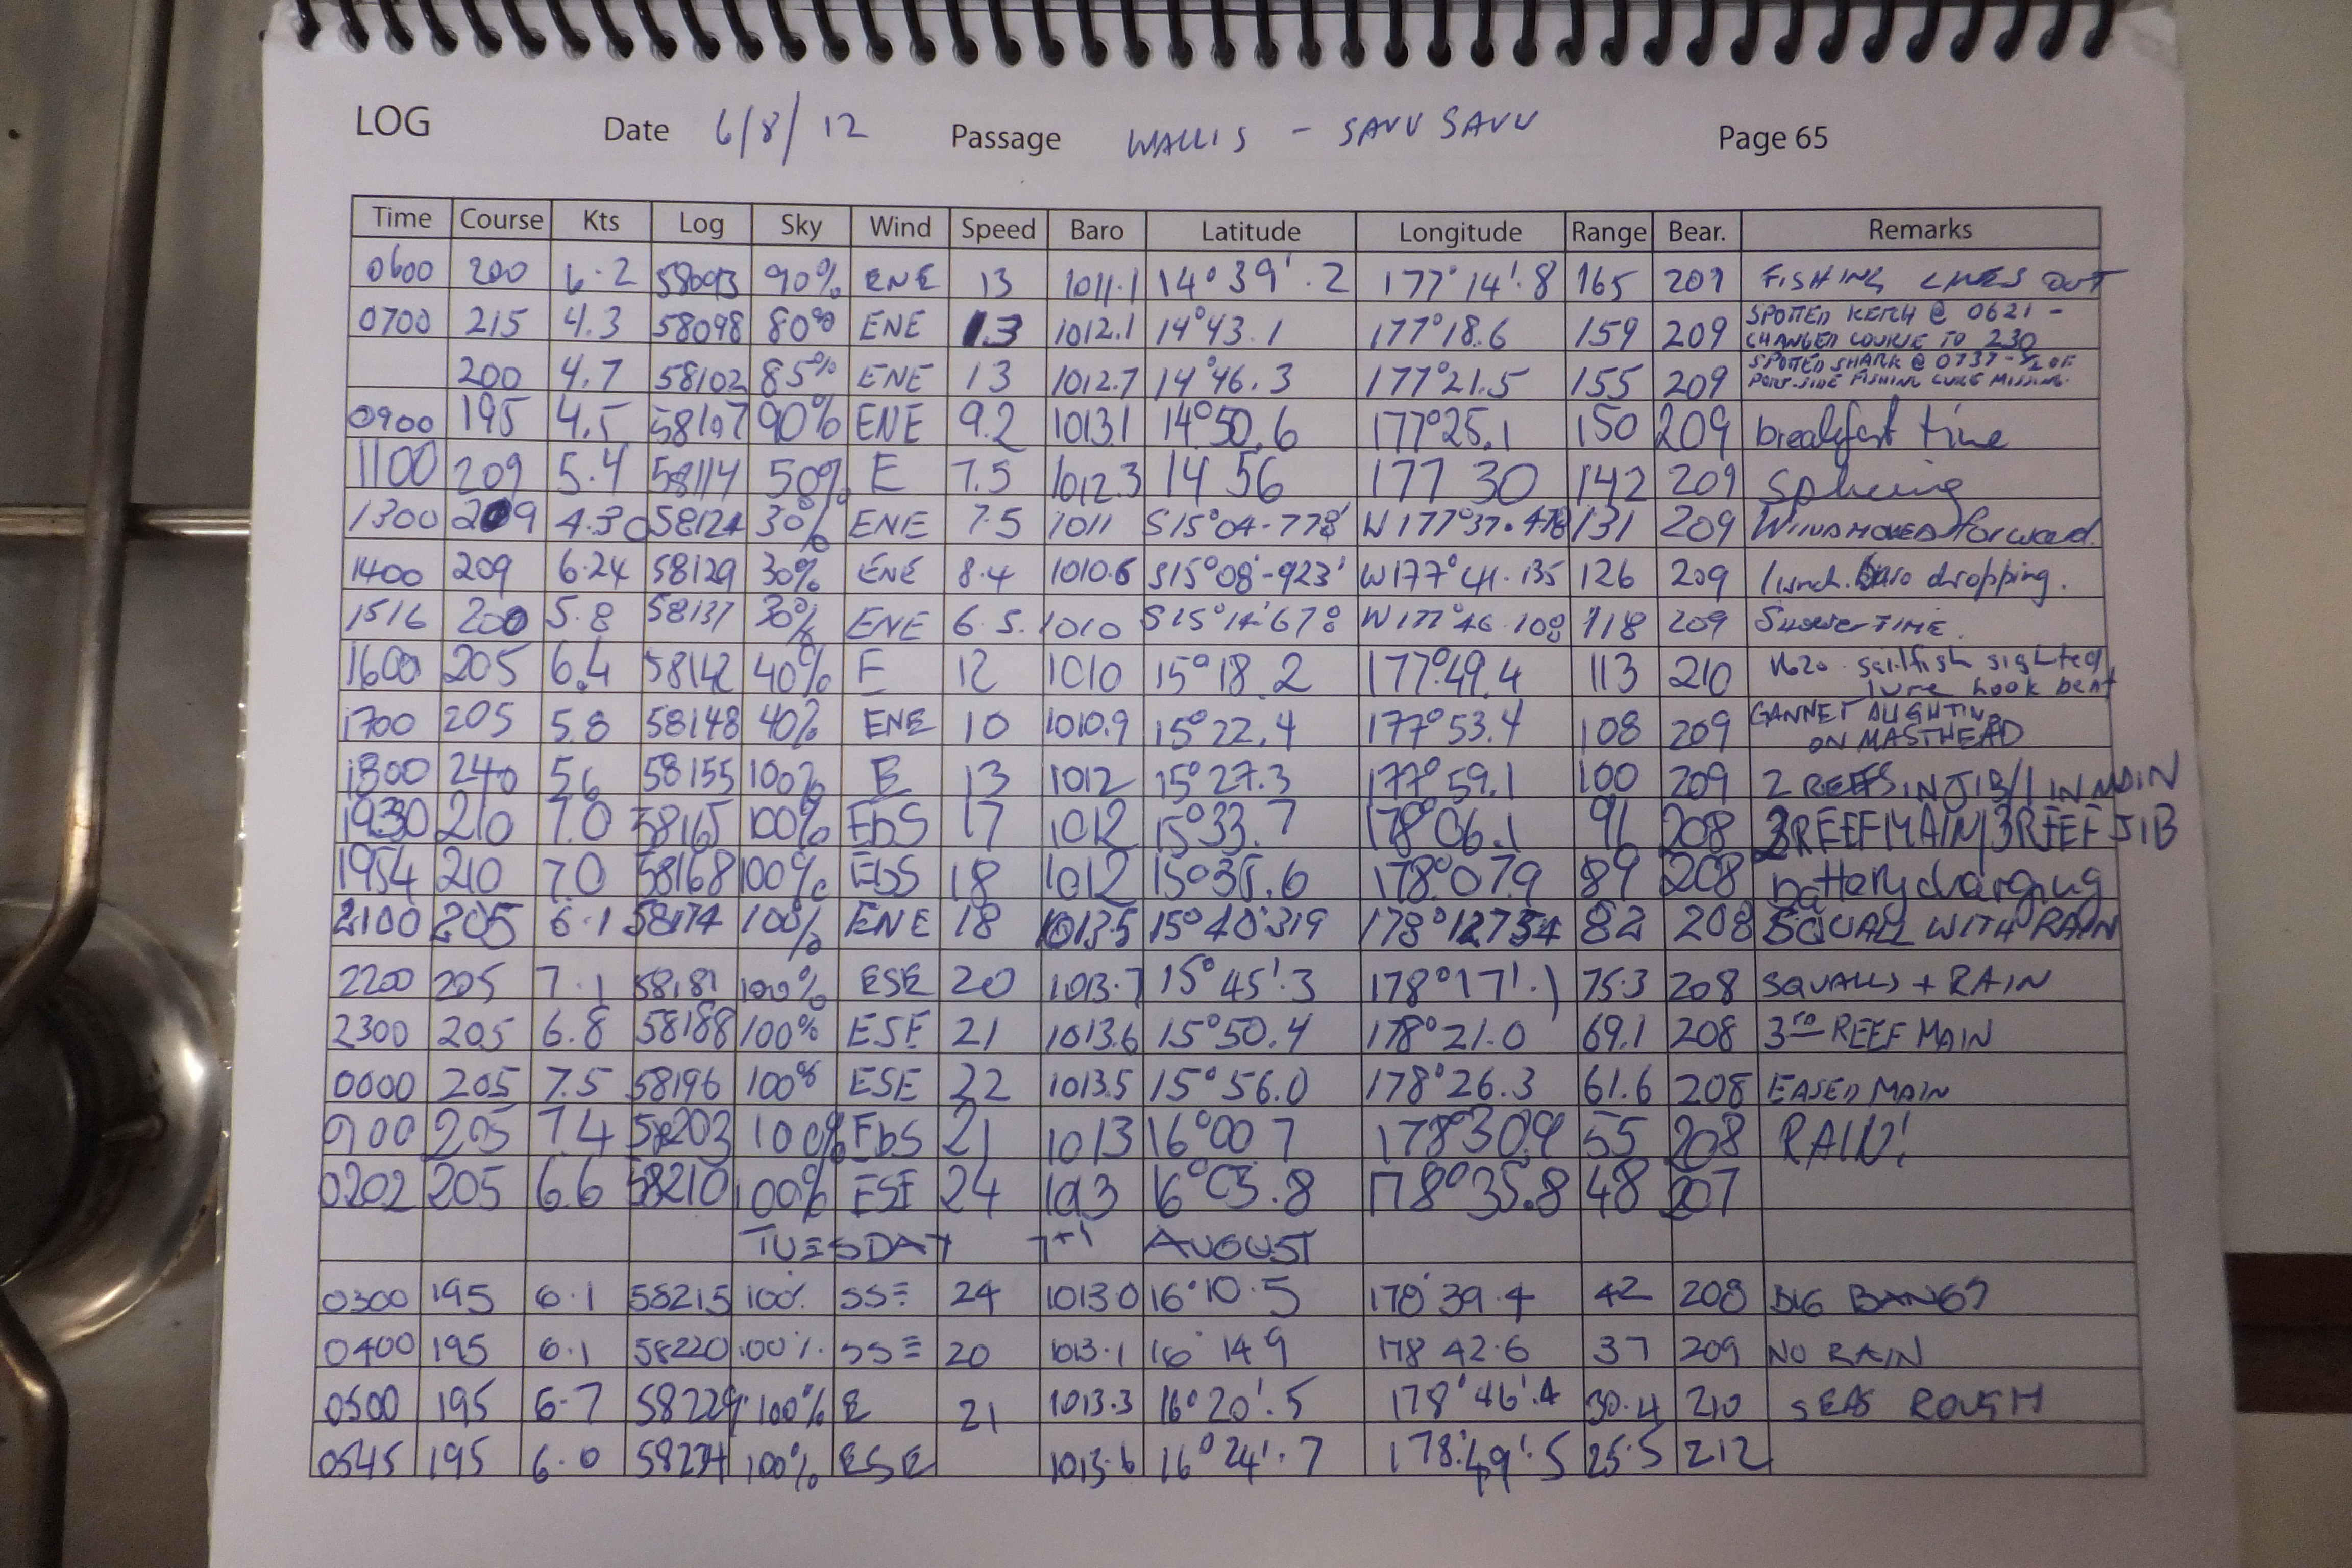 LOG Date 6/8/12 Passage WALLIS - SAVU SAVU Page 65
Time Course Kts Log Sky Wind Speed Baro Latitude Longitude Range Bear. Remarks
0600 200 6.2 58093 90% ENE 13 1011.1 14°39'.2 177°14'.8 165 209 FISHING LINES OUT
0700 215 4.3 58098 80% ENE 13 1012.1 14°43.1 177°18.6 159 209 SPOTTED KETCH @ 0621 - CHANGED COURSE TO 230
200 4.7 58102 85% ENE 13 1012.7 14°46.3 177°21.5 155 209 SPOTTED SHARK @ 0737 - 1/2 OF PORT-SIDE FISHING LURE MISSING.
0900 195 4.5 58107 90% ENE 9.2 1013.1 14°50.6 177°25.1 150 209 breakfast time
1100 209 5.4 58114 50% E 7.5 1012.3 14 56 177 30 142 209 Splicing
1300 209 4.30 58124 30% ENE 7.5 1011 S15°04-778' W177°37.478 131 209 WIND MOVED forward.
1400 209 6.24 58129 30% ENE 8.4 1010.6 S15°08'-923' W177°41.135 126 209 lunch. Baro dropping.
1516 200 5.8 58137 30% ENE 6.5. 1010 S15°14'678 W177°46.108 118 209 SHOWER TIME.
1600 205 6.4 58142 40% E 12 1010 15°18.2 177°49.4 113 210 1620 sailfish sighted, lure hook bent
1700 205 5.8 58148 40% ENE 10 1010.9 15°22.4 177°53.4 108 209 GANNET ON MASTHEAD
1800 240 5.6 58155 100% E 13 1012 15°27.3 177°59.1 100 209 2 REEFS IN JIB/1 IN MAIN
1930 210 7.0 58165 100% EbS 17 1012 15°33.7 178°06.1 96 208 2REEF MAIN/3REEF JIB
1954 210 7.0 58168 100% EbS 18 1012 15°35.6 178°07.9 89 208 battery charging
2100 205 6.1 58174 100% ENE 18 1013.5 15°40'319 178°12754 82 208 SQUALL WITH RAIN
2200 205 7.1 58181 100% ESE 20 1013.7 15°45'.3 178°17'.1 75.3 208 SQUALLS + RAIN
2300 205 6.8 58188 100% ESE 21 1013.6 15°50.4 178°21.0 69.1 208 3RD REEF MAIN
0000 205 7.5 58196 100% ESE 22 1013.5 15°56.0 178°26.3 61.6 208 EASED MAIN
0100 205 7.4 58203 100% EbS 21 1013 16°00 7 178°30.9 55 208 RAIN!
0202 205 6.6 58210 100% ESE 24 1013 16°05.8 178°35.8 48 207
TUESDAY 7TH AUGUST
0300 195 6.1 58215 100% SSE 24 1013.0 16°10.5 178°39.4 42 208 BIG BANGS
0400 195 6.1 58220 100% SSE 20 1013.1 16 14 9 178 42.6 37 209 NO RAIN
0500 195 6.7 58229 100% E 21 1013.3 16°20'.5 178°46'.4 30.4 210 SEAS ROUGH
0545 195 6.0 58234 100% ESE 1013.6 16°24'.7 178°49'.5 25.5 212